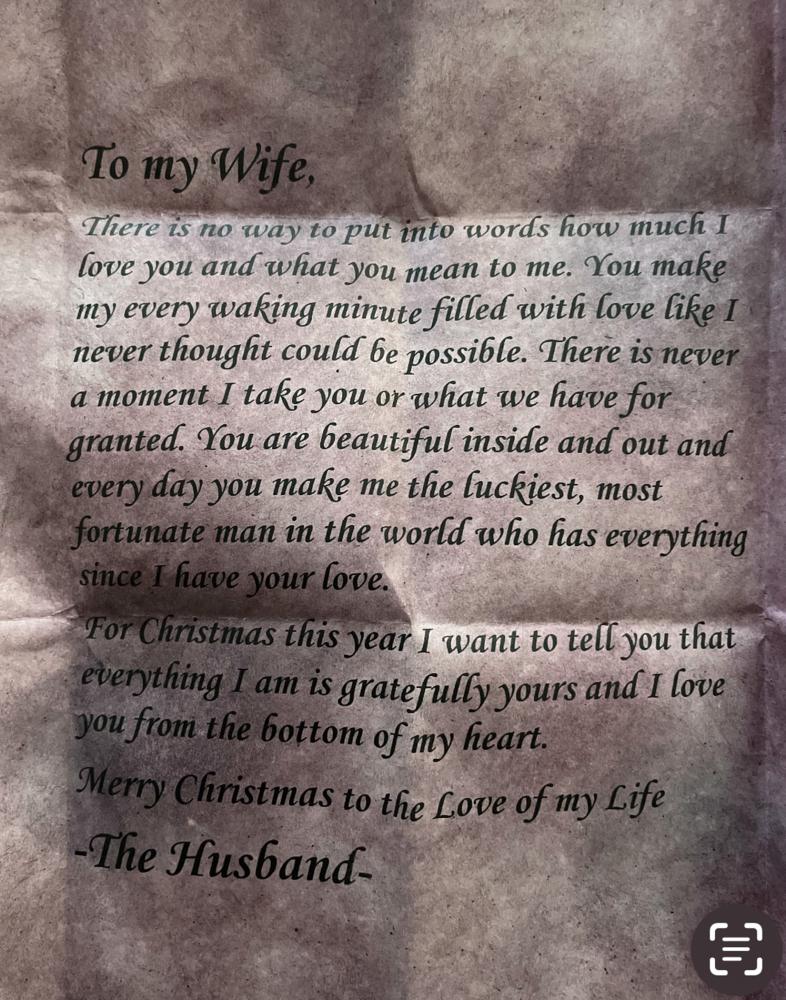 To my Wife,
There is no way to put into words how much I
love you and what you mean to me. You make
my every waking minute filled with love like I
never thought could be possible. There is never
a moment I take you or what we have for
granted. You are beautiful inside and out and
every day you make me the luckiest, most
fortunate man in the world who has everything
since I have your love.
For Christmas this year I want to tell you that
everything I am is gratefully yours and I love
you from the bottom of my heart.
Merry Christmas to the Love of my Life
-The Husband-